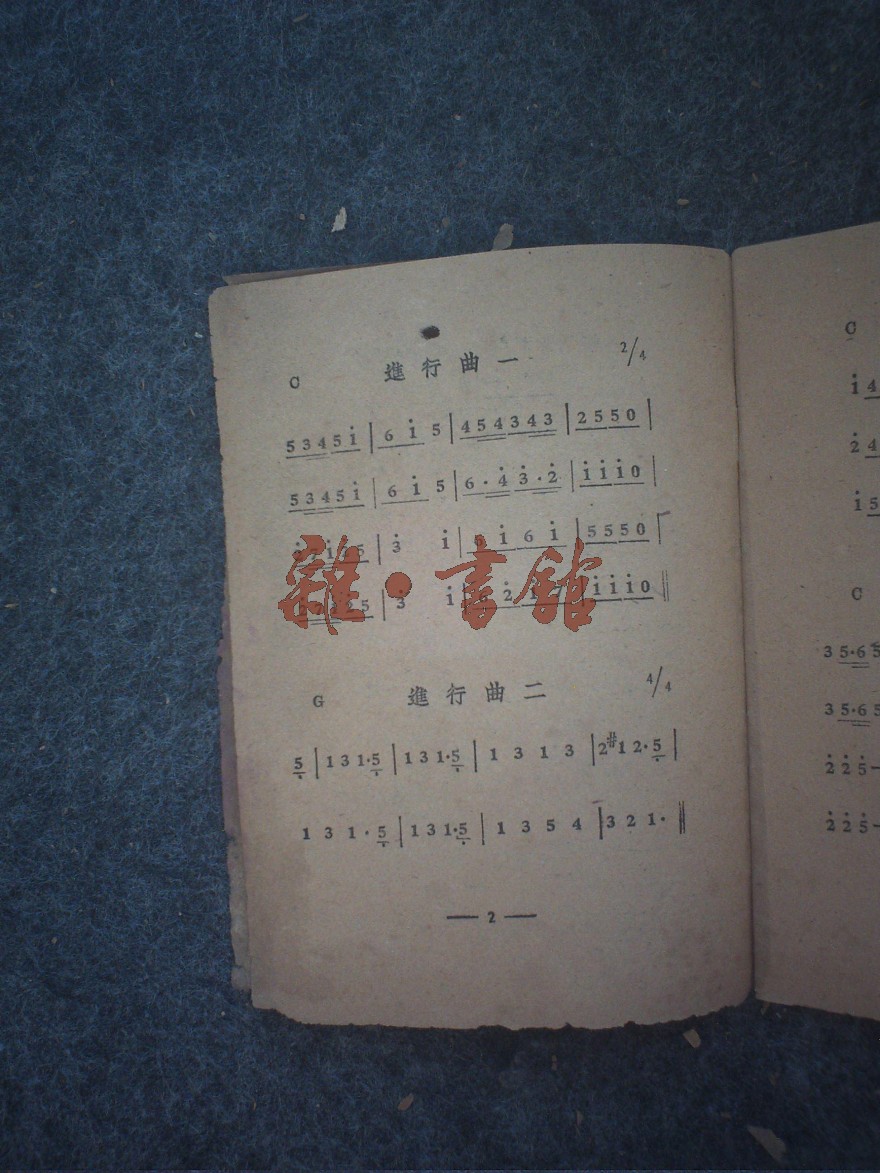 C 進行曲一 2/4
5 3 4 5 i̇ | 6 i̇ 5 | 4 5 4 3 4 3 | 2 5 5 0 |
5 3 4 5 i̇ | 6 i̇ 5 | 6 · 4̇ 3̇ · 2̇ | i̇ i̇ i̇ 0 |
5 | 3̇ i̇ | 5 i̇ 6 i̇ | 5 5 5 0
2 5 | 3̇ i̇ | 6 2̇ | i̇ i̇ i̇ 0 ‖
雜·書館
G 進行曲二 4/4
5̣ | 1 3 1·5̣ | 1 3 1·5̣ | 1 3 1 3 | 2 #1 2·5̣ |
1 3 1·5̣ | 1 3 1·5̣ | 1 3 5 4 | 3 2 1· ‖
— 2 —
C
i̇ 4
2̇ 4
i̇ 5
C
3 5·6 5
3 5·6 5
2̇ 2̇ 5̇ —
2̇ 2̇ 5̇ —